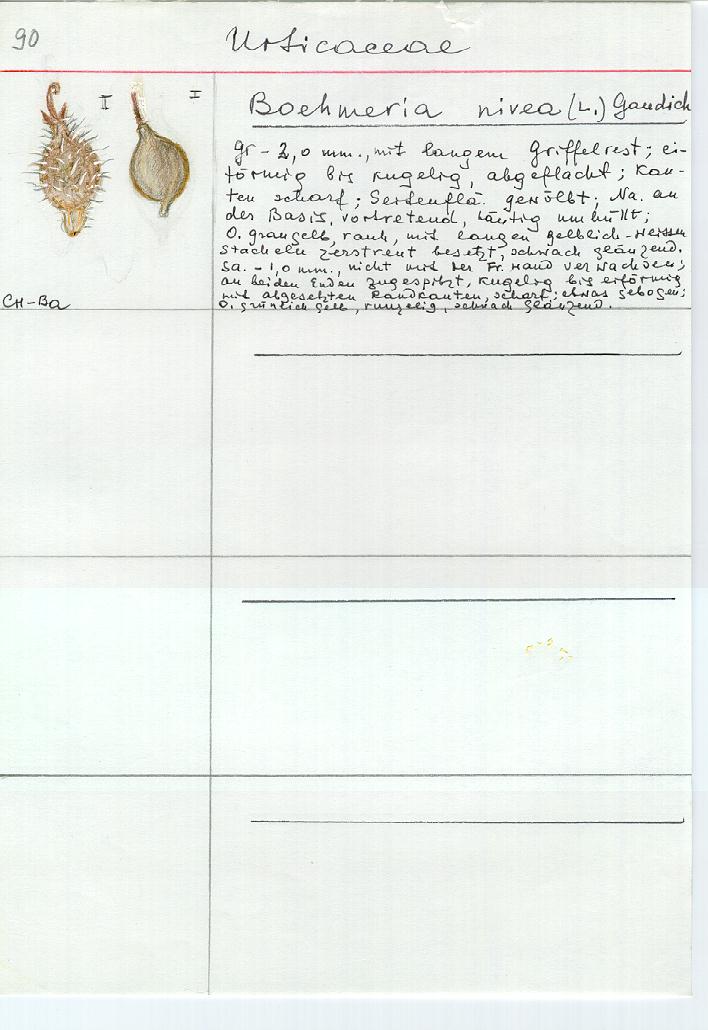 90
Urticaceae
I
I
Boehmeria nivea (L.) Gaudich
gr - 2,0 mm., mit langem Griffelrest; ei-
förmig bis kugelig, abgeflacht; Kan-
ten scharf; Seitenflä. gewölbt; Na. an
der Basis, vortretend, häutig umhüllt;
O. graugelb, rauh, mit langen gelblich-weissen
stacheln zerstreut besetzt, schwach glänzend.
Sa. - 1,0 mm., nicht mit der Fr. Wand verwachsen;
an beiden Enden zugespitzt, kugelig bis eiförmig
mit abgesetzten Randkanten, scharf; etwas gebogen;
O. grünlich gelb, runzelig, schwach glänzend.
CH-Ba